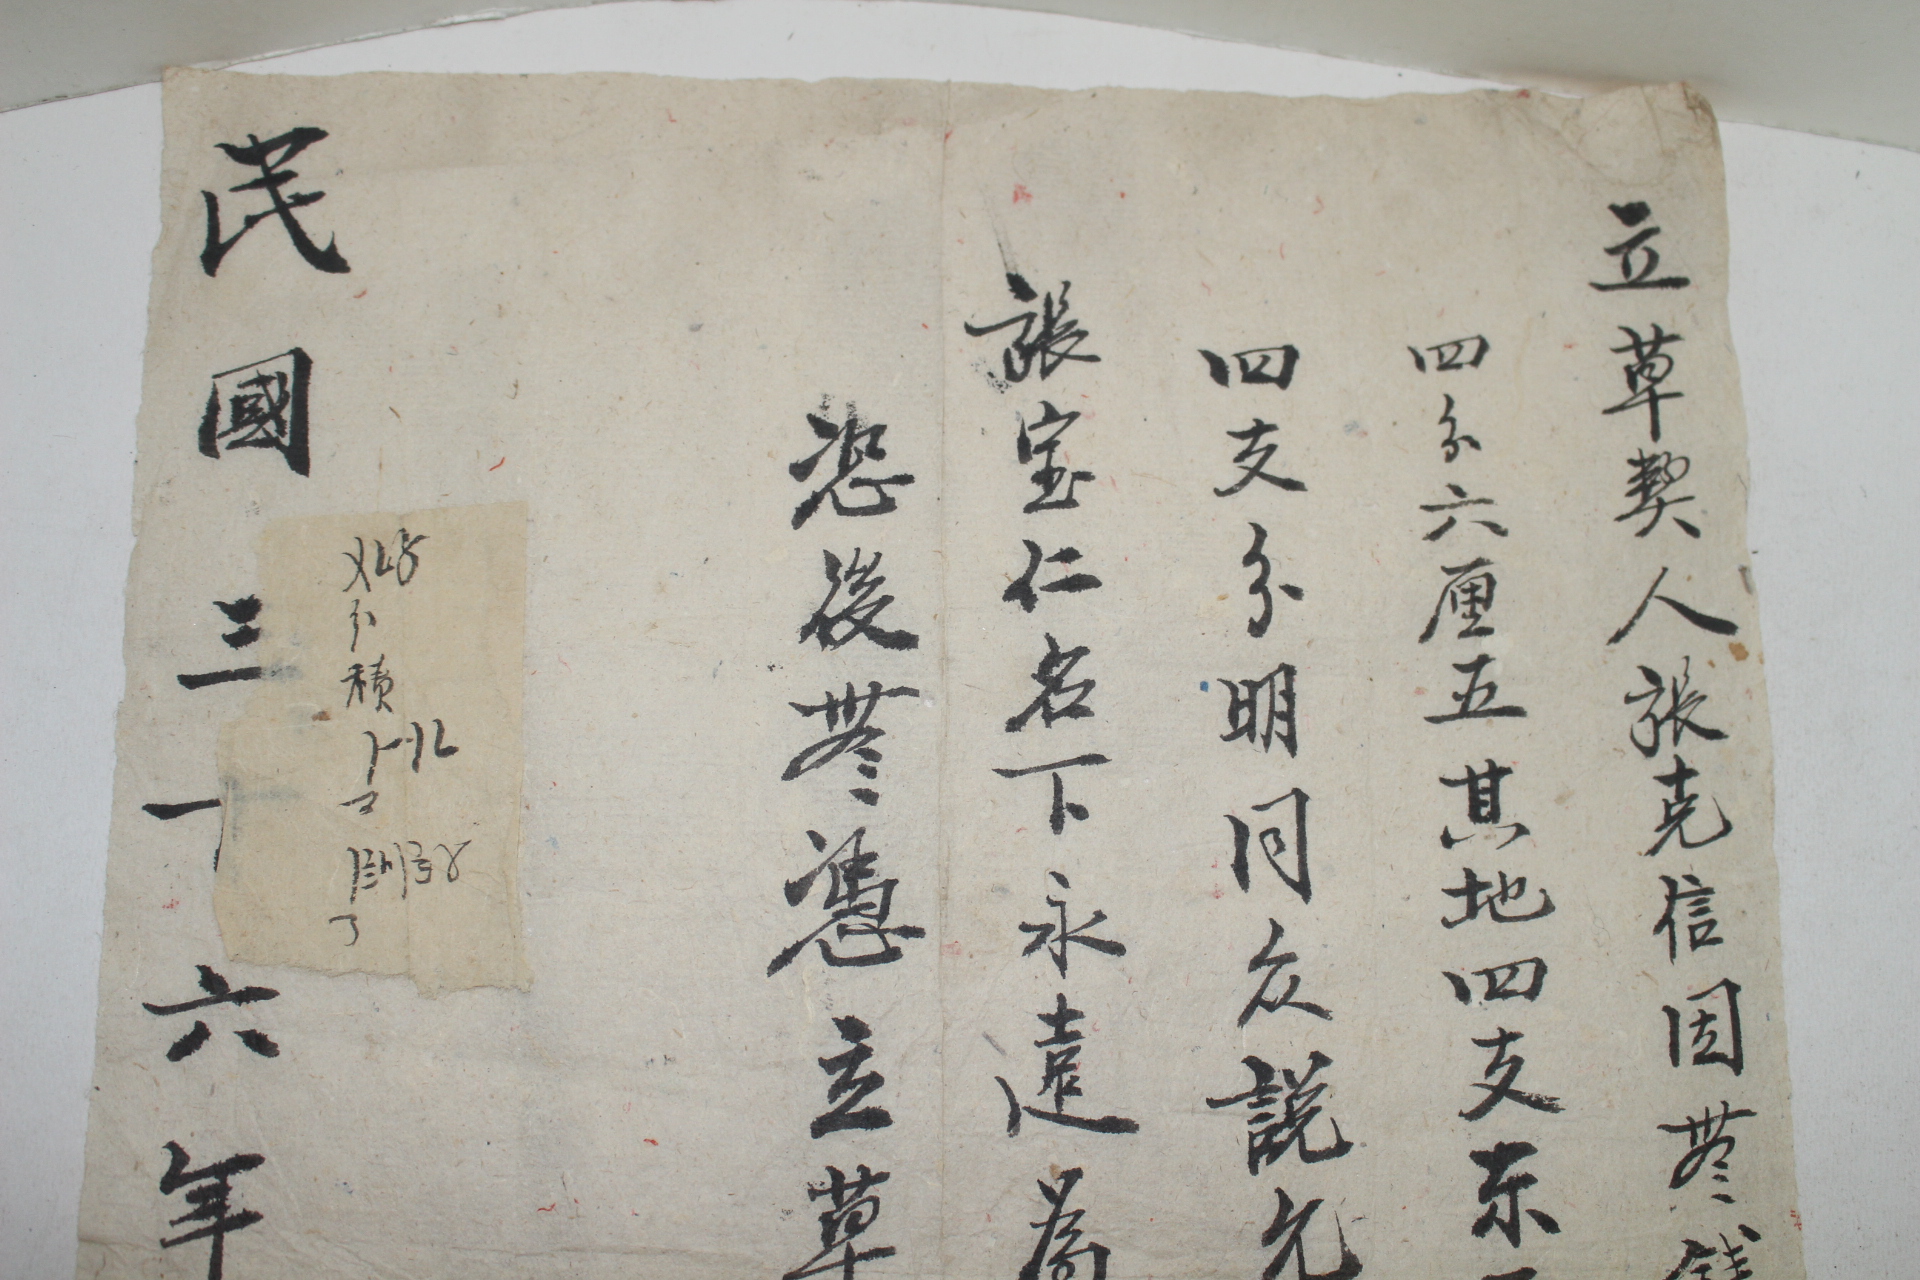 立草契人張克信因無錢
四分六厘五其地四支东
四支分明同众説允
張宝仁名下永遠為
恐後無憑立草
民國三十六年
積